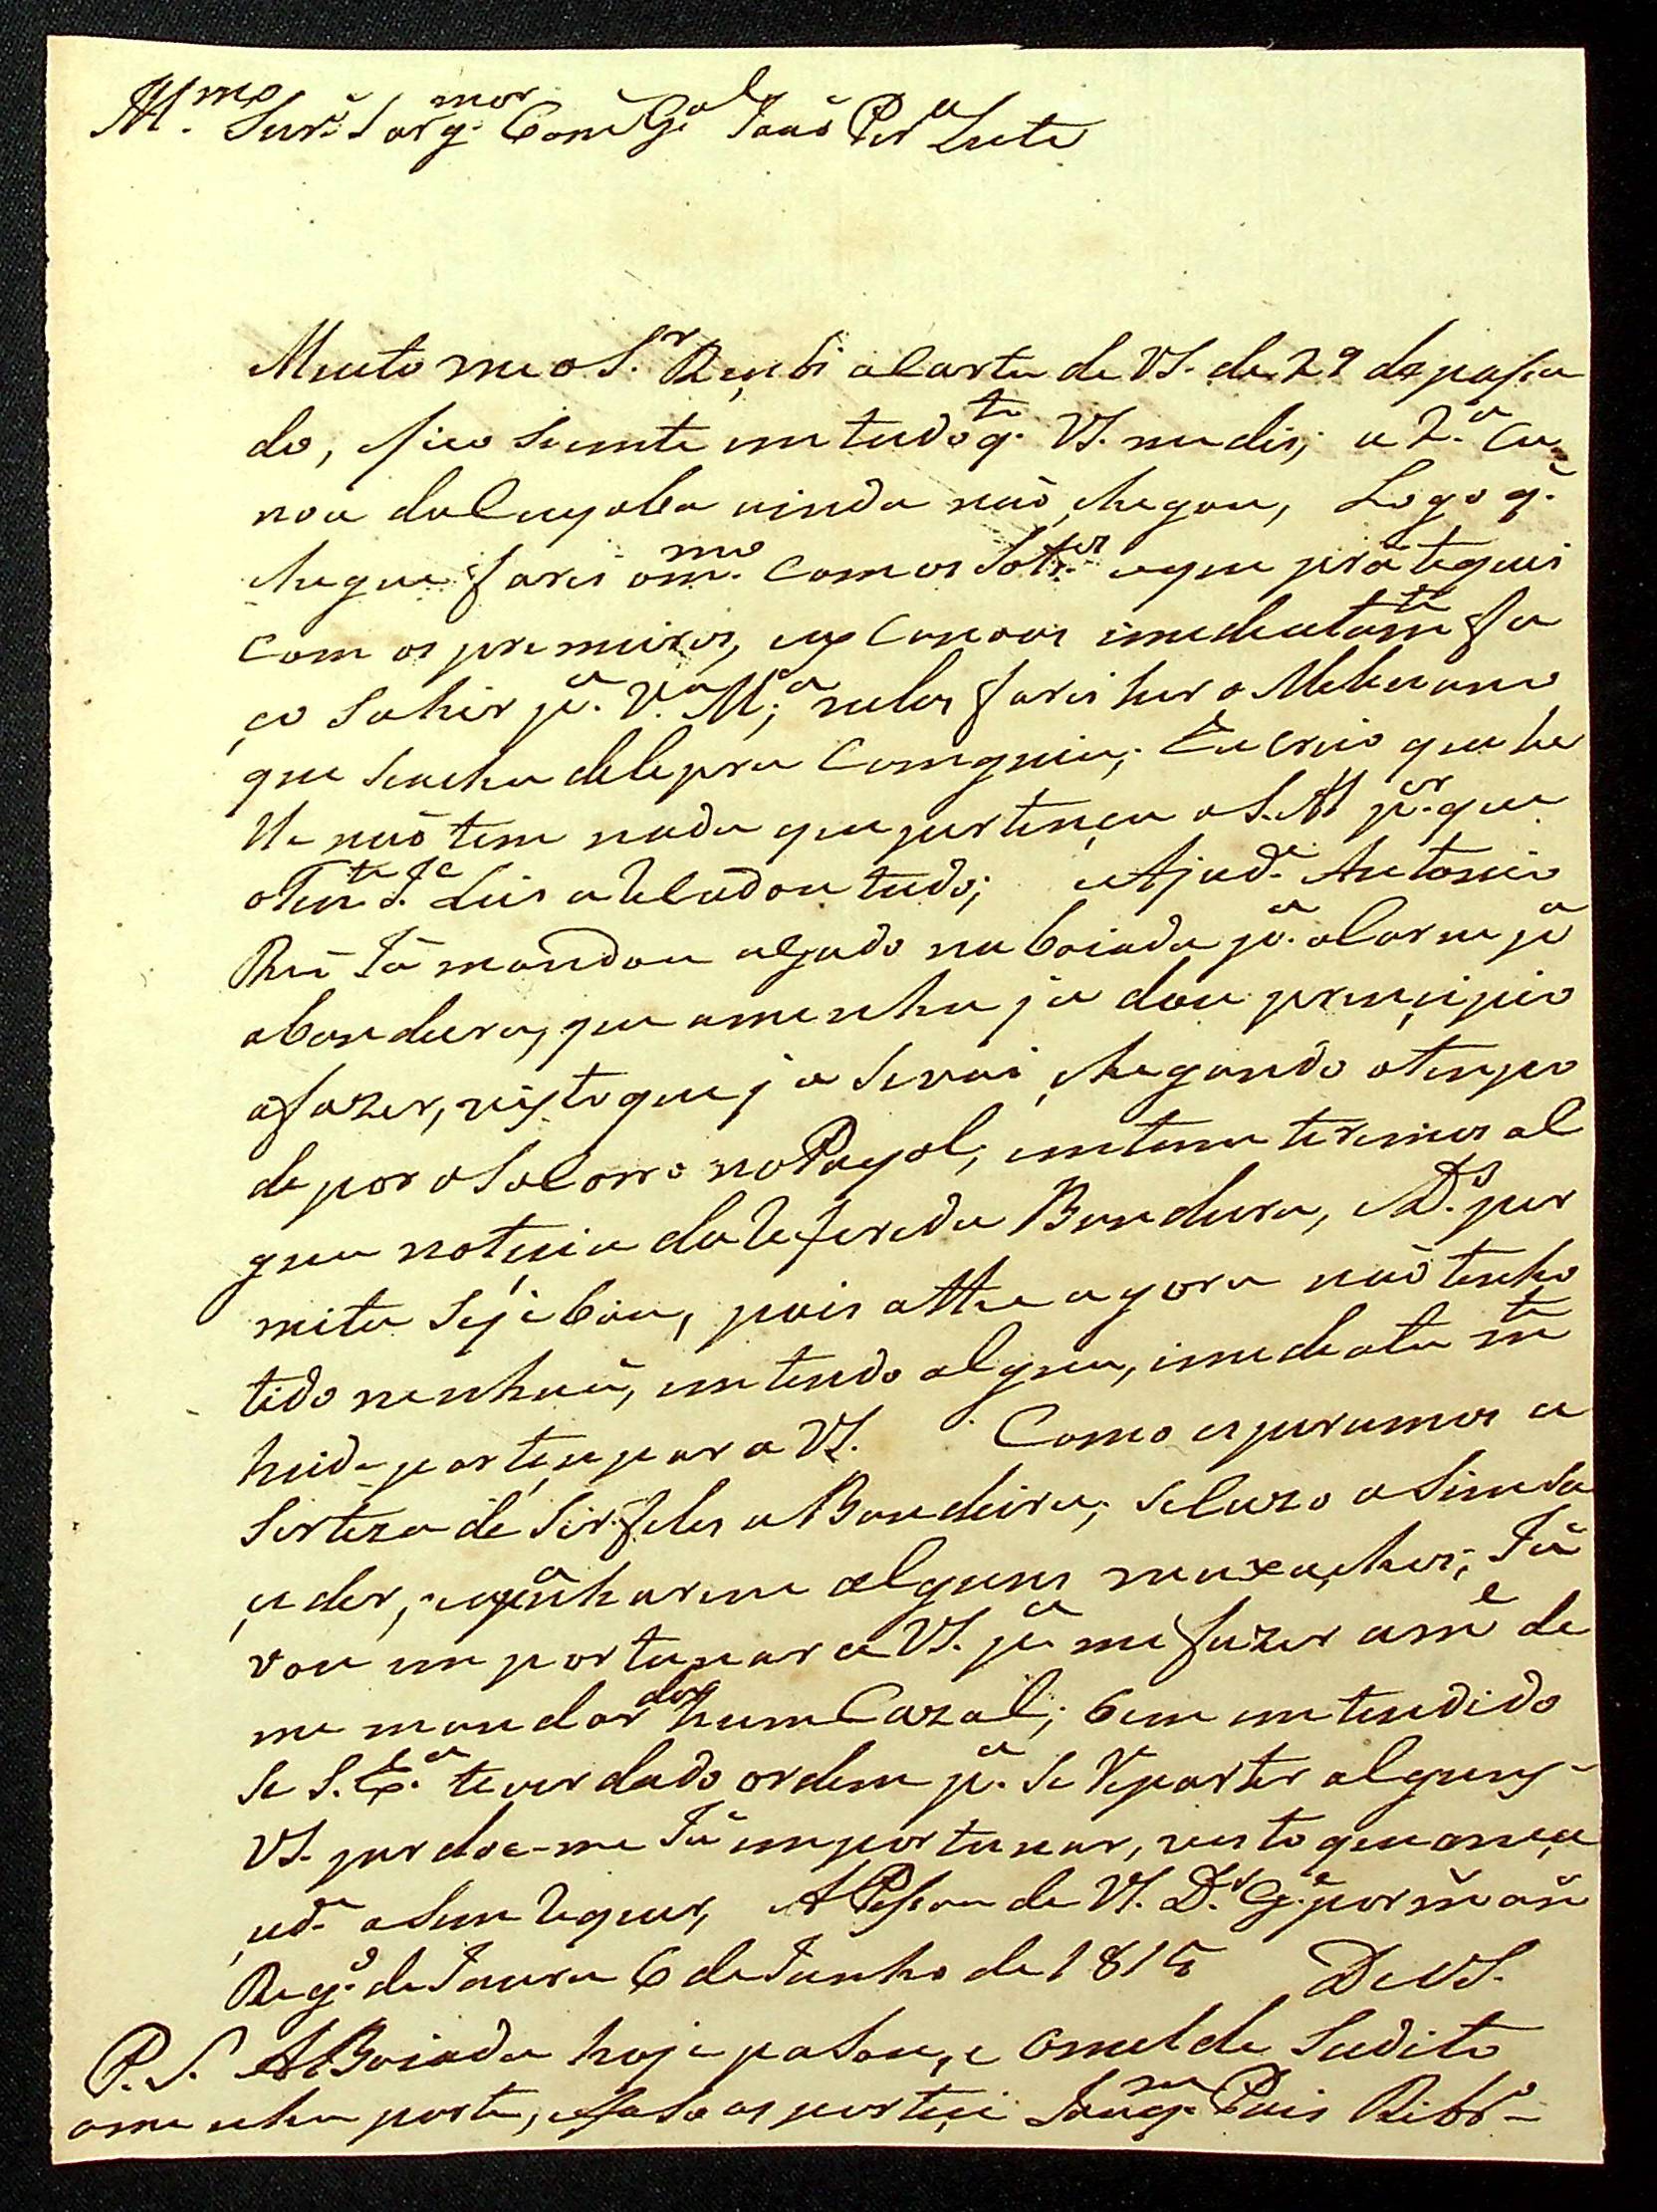 Ill.mo Snr. Sarg.mor Com.e G.al João Per.a Leite
Muito meo S.r Recebi a Carta de VS. de 29 do pasa
do, e fico siente em tudo q.to VS. me dis; a 2.a Ca
noa do Cuyaba ainda não chegou, Logo q.
chegue farei o m.mo com os Sold.os que pratequei
com os premeiros, e as Canoas imediatam.te fa
ço sahir p.a V.a M.a; nelas farei hir o Mileciano
que se acha de lepra Comguia; Eu creio que he
lle não tem nada que pertença a S.A R p.r que
o Ten.te J.e Luis a Recadou tudo; o Ajud.e Antonio
Rõi Já mandou o gado na boiada p.a a Carne p.a
a bandeira, que amenha ja dou prencipio
a fazer, visto que ja se vai chegando o tempo
de por o Socorro no Payol; em tera teremos al
gua noticia da Referida Bandeira, e D.s per
mita seje boa, pois athe agora não tenho
tido nenhuã, em tendo algua, imediatam.te
heide partesepar a VS. Como esperamos a
Serteza de Ser feles a Bandeira; se cazo asim su
ceder, e apanharem alguns muxaxos; Já
vou importunar a VS. p.a me fazer a m.e de
me mandar dar hum Cazal; bem entendido
se S. Ex.a tever dado ordem p.a se Reparter alguns
VS. perdoe-me Já importunar, visto que a nesa
sid.e asim Requer, A Pesoa de VS. D.s G.e por m. an.
Reg.o de Jauru 6 de Junho de 1815 De VS.
P.S. A Boiada hoje pasou, e o mel de Sudito
amenha parte, e fasa as partesi Joaq.m Pais Rib.ro